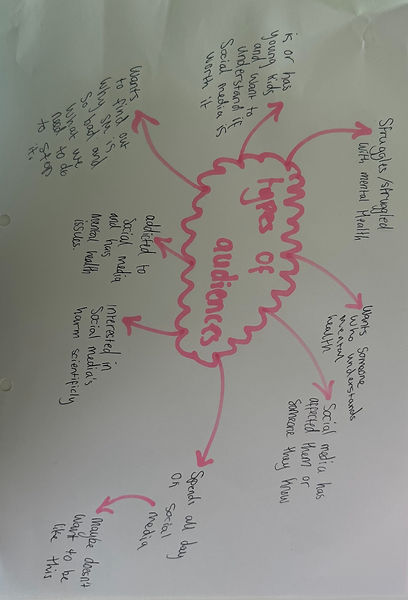 Struggles/struggled
with mental Health
Wants someone
who understands
mental
health
Social media has
affected them or
someone they know
is or has
young kids
and want to
understand if
Social media is
worth it
types of
audiences
Wants
to find out
why sm is
so bad and
what we
need to do
to stop
it.
addicted to
Social media
and has
mental health
issues.
Interested in
Social media's
harm scientificly
Spends all day
on social
media
maybe doesn't
want to be
like this